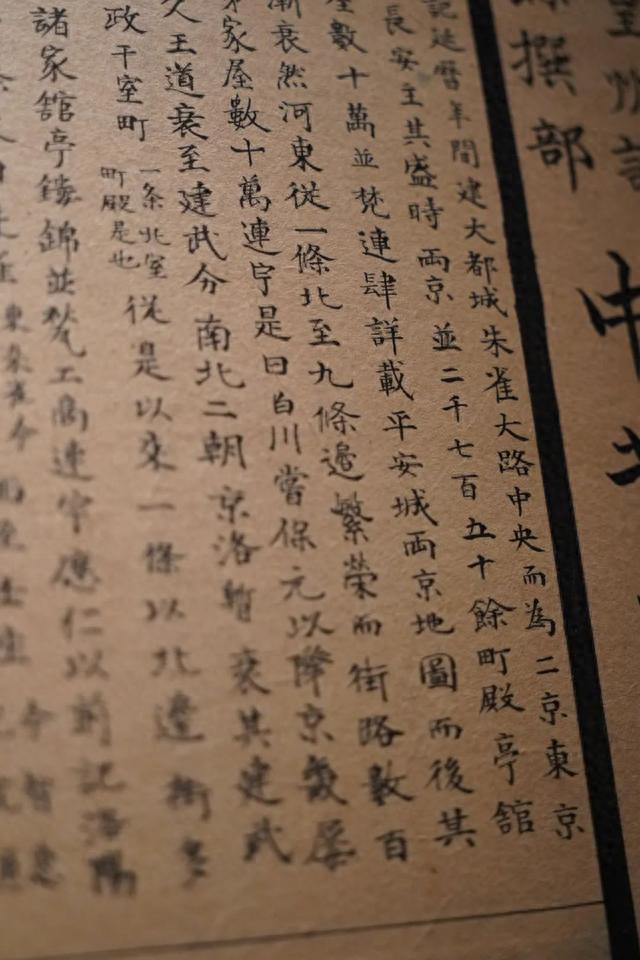 撰部
記延暦年間建大都城朱雀大路中央而為二京東京
長安主其盛時両京並二千七百五十餘町殿亭舘
數十萬並甍連肆詳載平安城両京地圖而後其
衰然河東從一條北至九條邉繁榮而街路數百
家屋數十萬連宇是曰白川當保元以降京畿屋
久王道衰至建武分南北二朝京洛暫衰其建武
政干室町
一条北室
町殿是也
從是以來一條以北邊街多
諸家舘亭鏤錦並甍工商連宇應仁以前記洛陽